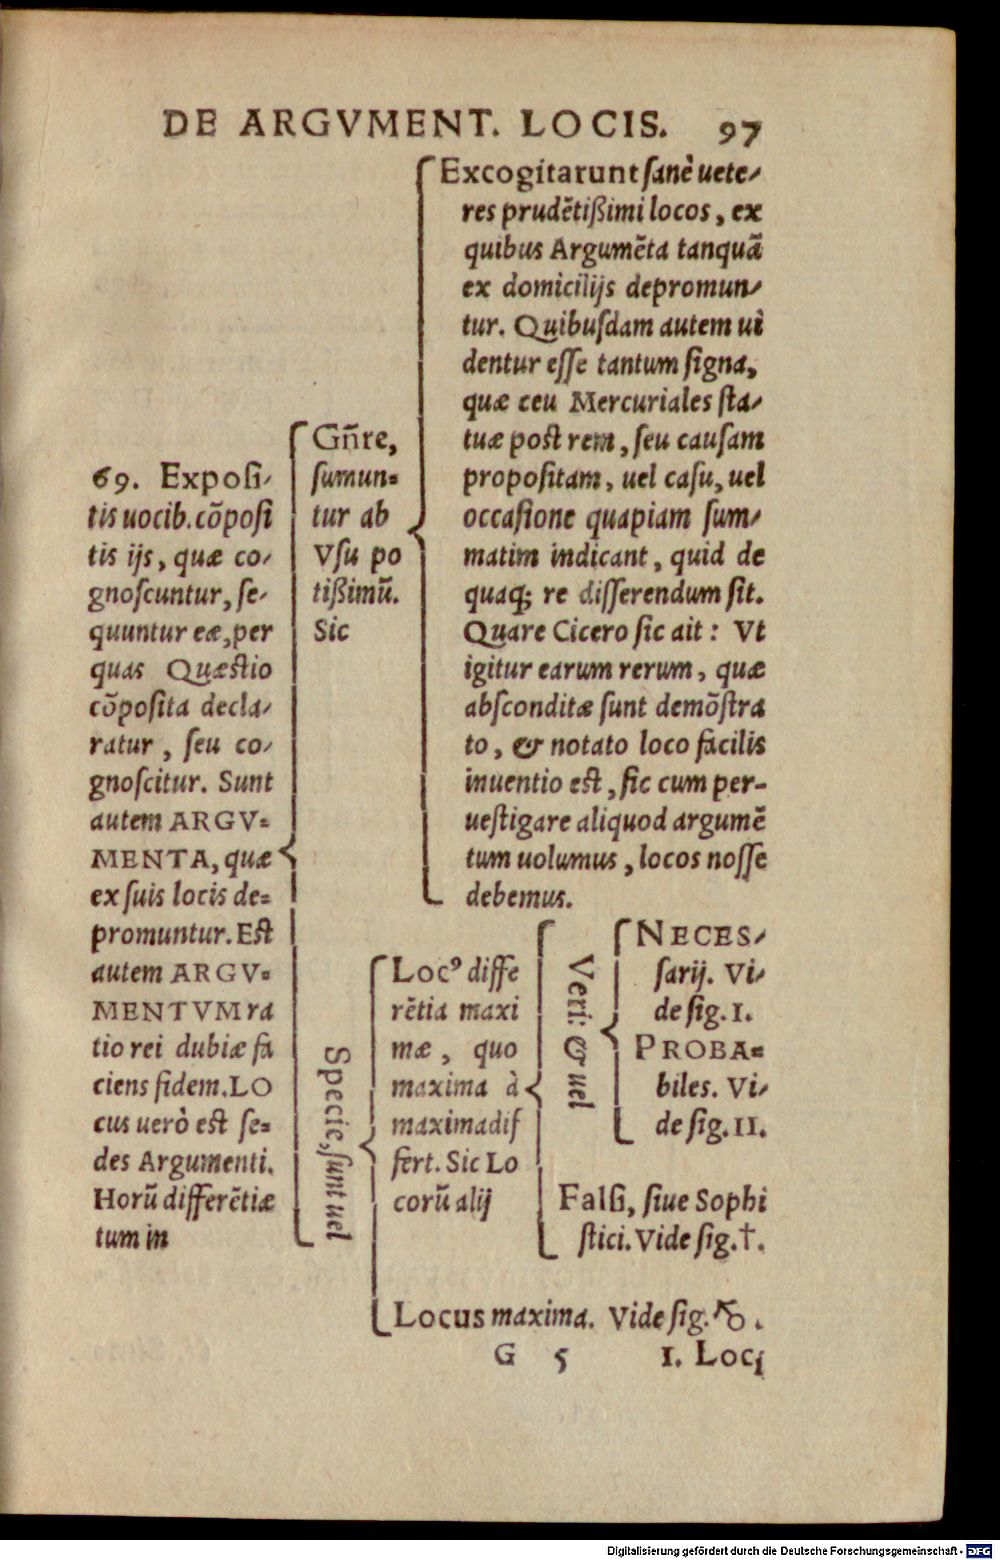 DE ARGVMENT. LOCIS. 97
69. Exposi-
tis uocib. cōposi
tis ijs, quæ co-
gnoscuntur, se-
quuntur eæ, per
quas Quæstio
cōposita decla-
ratur, seu co-
gnoscitur. Sunt
autem ARGV-
MENTA, quæ
ex suis locis de-
promuntur. Est
autem ARGV-
MENTVM ra
tio rei dubiæ fa
ciens fidem. LO
cus uerò est se-
des Argumenti.
Horū differētiæ
tum in
Gñre,
sumun-
tur ab
Vsu po
tißimū.
Sic
Excogitarunt sanè uete-
res prudētißimi locos, ex
quibus Argumēta tanquā
ex domicilijs depromun-
tur. Quibusdam autem ui
dentur esse tantum signa,
quæ ceu Mercuriales sta-
tuæ post rem, seu causam
propositam, uel casu, uel
occasione quapiam sum-
matim indicant, quid de
quaq; re disserendum sit.
Quare Cicero sic ait: Vt
igitur earum rerum, quæ
absconditæ sunt demōstra
to, & notato loco facilis
inuentio est, sic cum per-
uestigare aliquod argumē
tum uolumus, locos nosse
debemus.
Specie, sunt uel
Locꝰ diffe
rētia maxi
mæ, quo
maxima à
maxima dif
fert. Sic Lo
corū alij
Veri: & uel
NECES-
sarij. Vi-
de sig. I.
PROBA-
biles. Vi-
de sig. II.
Falsi, siue Sophi
stici. Vide sig. †.
Locus maxima. Vide sig.
G 5 I. Loci
Digitalisierung gefördert durch die Deutsche Forschungsgemeinschaft - DFG